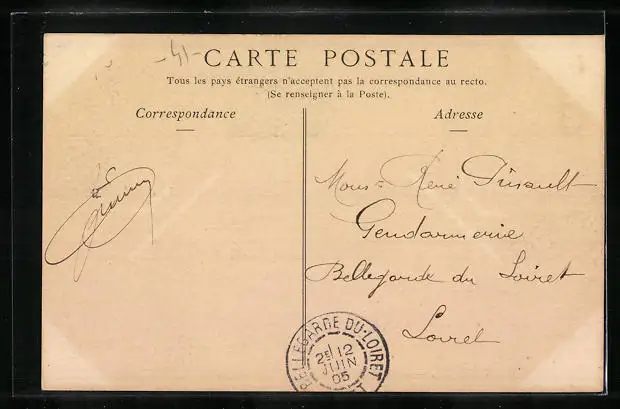 -41-
CARTE POSTALE
Tous les pays étrangers n'acceptent pas la correspondance au recto.
(Se renseigner à la Poste).
Correspondance
Adresse
René
Gendarmerie
Bellegarde du Loiret
Loiret
BELLEGARDE-DU-LOIRET
2E 12
JUIN
05